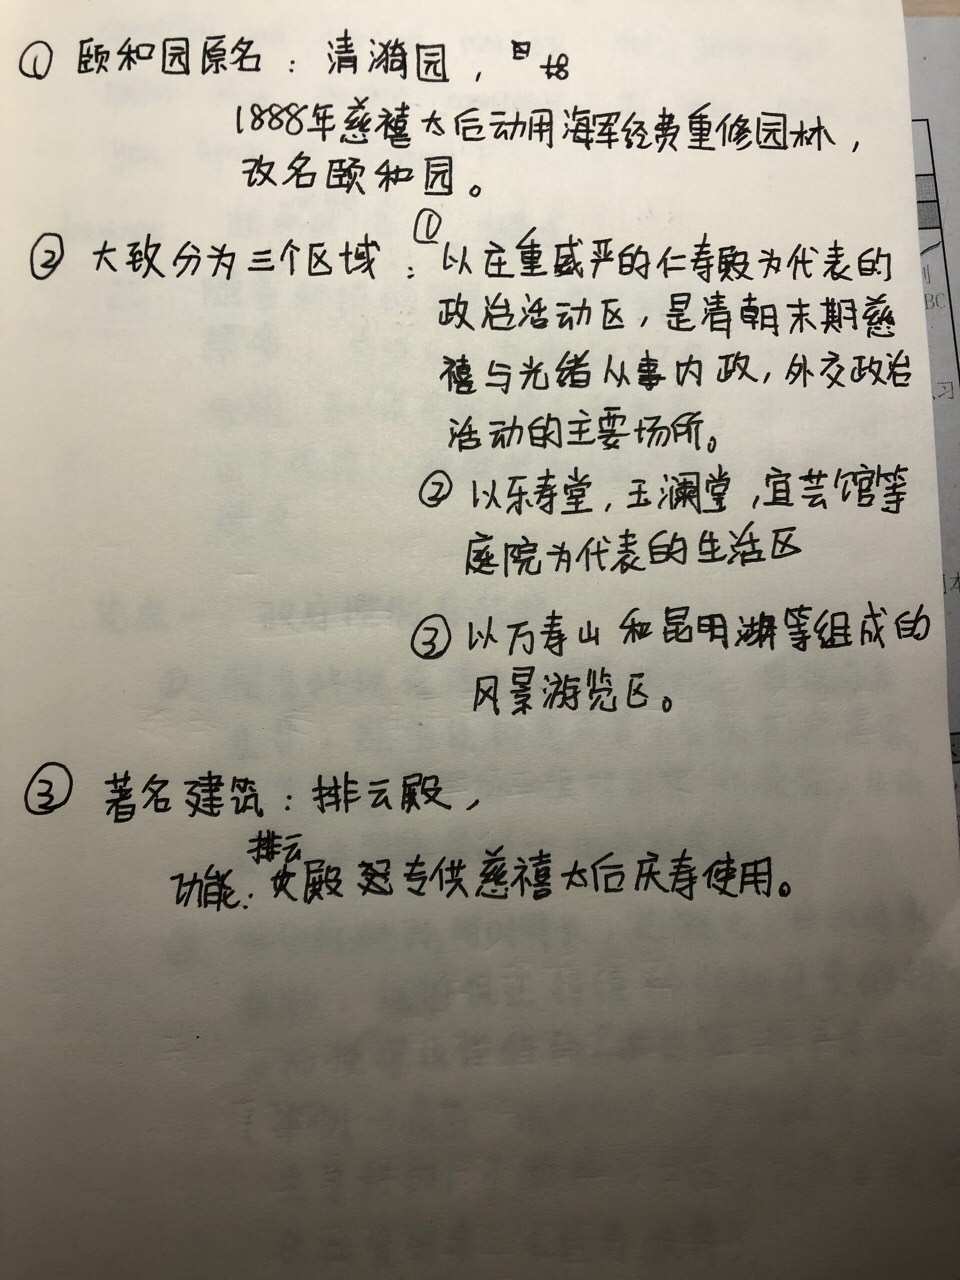 ① 颐和园原名：清漪园，
1888年慈禧太后动用海军经费重修园林，
改名颐和园。
② 大致分为三个区域：① 以庄重威严的仁寿殿为代表的
政治活动区，是清朝末期慈
禧与光绪从事内政，外交政治
活动的主要场所。
② 以乐寿堂，玉澜堂，宜芸馆等
庭院为代表的生活区
③ 以万寿山和昆明湖等组成的
风景游览区。
③ 著名建筑：排云殿，
排云
功能：殿 专供慈禧太后庆寿使用。
BC
习